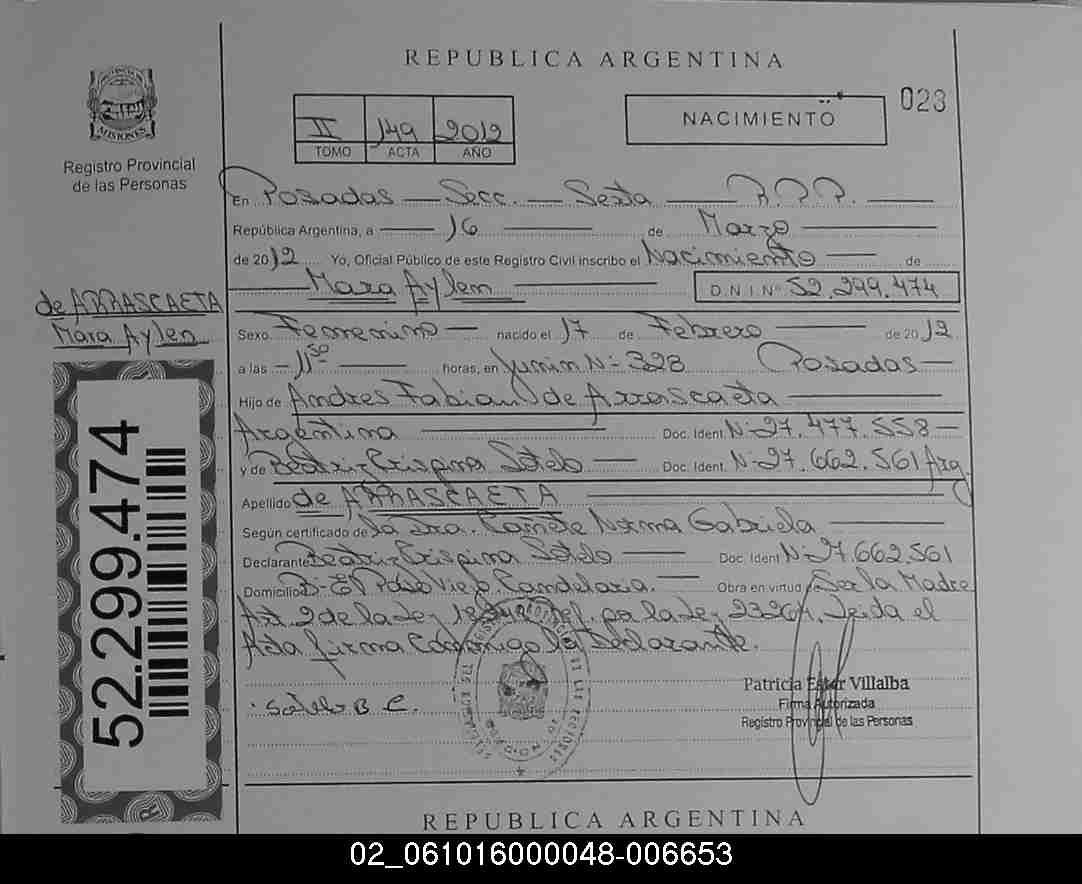 REPUBLICA ARGENTINA
023
II 149 2012
TOMO ACTA AÑO
NACIMIENTO
MISIONES
Registro Provincial
de las Personas
En Posadas — Secc. — Sexta — R.P.P. —
República Argentina, a — 16 — de Marzo —
de 2012 Yo, Oficial Público de este Registro Civil inscribo el Nacimiento — de
— Mara Aylen — D.N.I. Nº 52.299.474
de ARRASCAETA
Mara Aylen
Sexo Femenino — nacido el 17 de Febrero — de 2012
a las — 11 30 — horas, en Junin Nº 328 Posadas —
Hijo de Andres Fabian de Arrascaeta —
Argentina — Doc. Ident. Nº 27.477.558 —
y de Beatriz Crispina Sotelo — Doc. Ident. Nº 27.662.561 Arg.
Apellido de ARRASCAETA —
Según certificado de la Dra. Norma Gabriela —
Declarante Beatriz Crispina Sotelo — Doc. Ident Nº 27.662.561
Domicilio Bº El Viejo, Candelaria. — Obra en virtud Ser la Madre
Art. 2 de la Ley por la Ley 23264. Leida el
Acta firma Conmigo la Declarante.
Sotelo B C.
Patricia Ester Villalba
Firma Autorizada
Registro Provincial de las Personas
52.299.474
REPUBLICA ARGENTINA
02_061016000048-006653